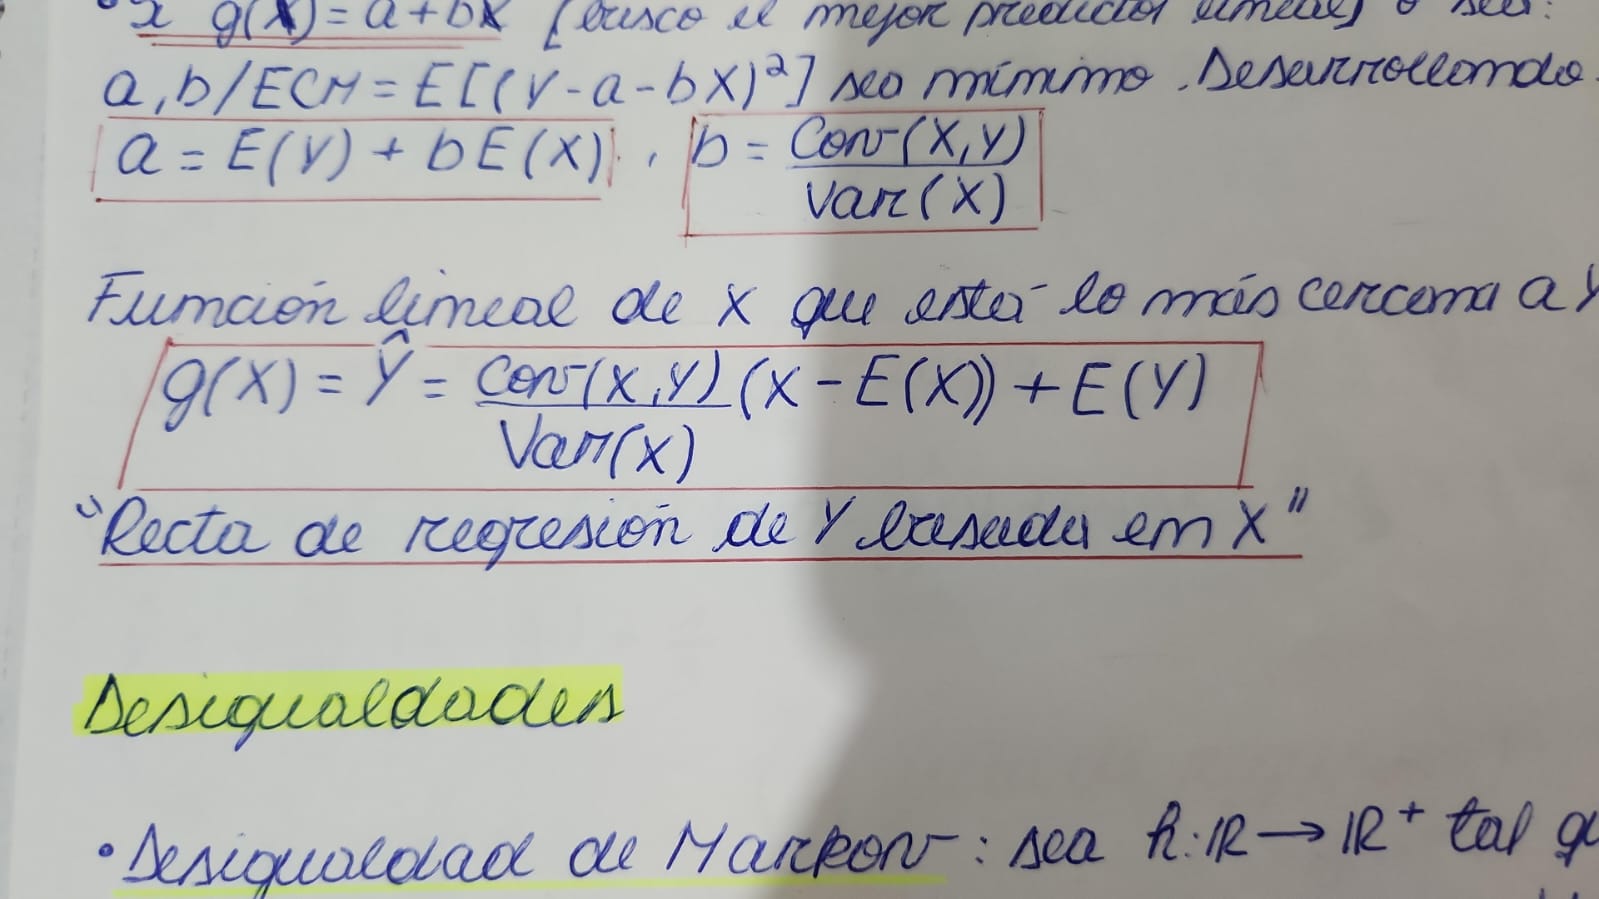 • Si g(X) = a + bX [busco el mejor predictor lineal] o sea:
a, b / ECM = E[(Y - a - bX)²] sea mínimo. Desarrollando
a = E(Y) + bE(X) , b = Cov(X,Y) / Var(X)
Función lineal de X que está lo más cercana a Y
g(X) = Ŷ = Cov(X,Y) / Var(X) (X - E(X)) + E(Y)
"Recta de regresión de Y basada en X"
Desigualdades
• Desigualdad de Markov: sea h: ℝ → ℝ⁺ tal